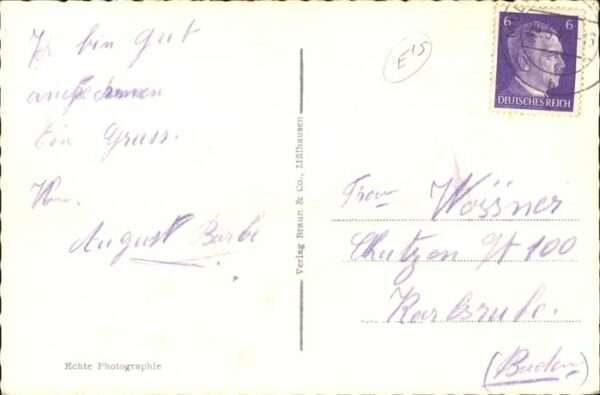 Ich bin gut
angekommen
Ein Gruss.
August Barbe
Echte Photographie
Verlag Braun & Co., Mülhausen
E15
6 6
DEUTSCHES REICH
Frau Wössner
100
Karlsruhe.
(Baden)